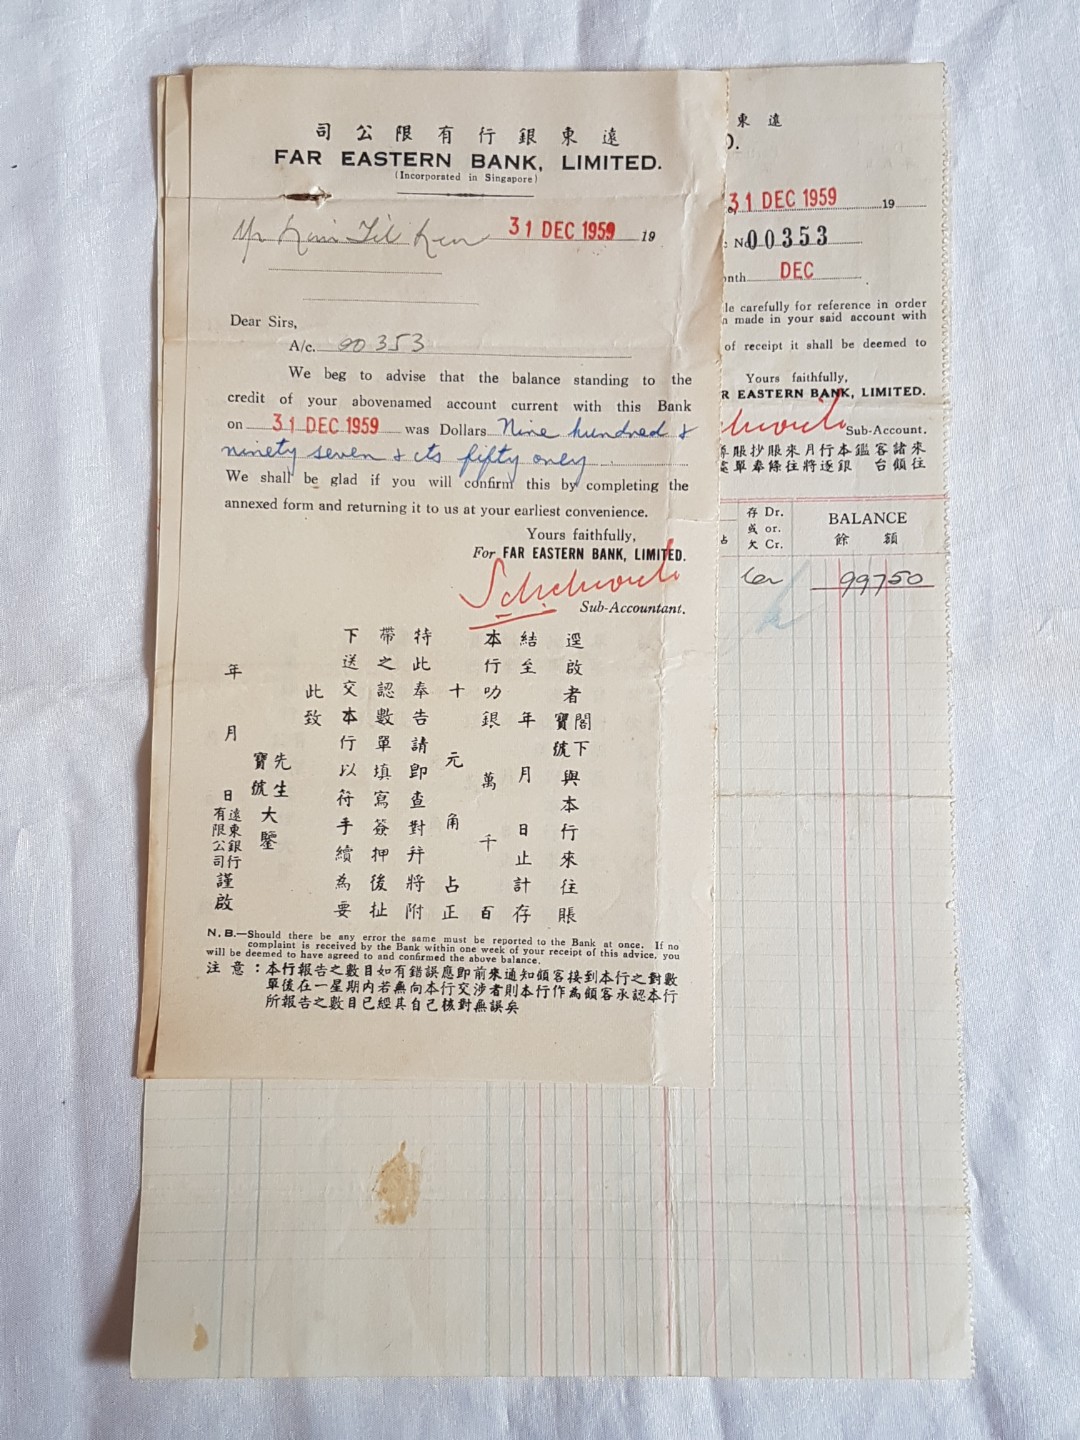 司公限有行銀東遠
FAR EASTERN BANK, LIMITED.
(Incorporated in Singapore)
31 DEC 1959 19
Dear Sirs,
A/c. 00353
We beg to advise that the balance standing to the
credit of your abovenamed account current with this Bank
on 31 DEC 1959 was Dollars Nine hundred &
ninety seven & cts fifty only
We shall be glad if you will confirm this by completing the
annexed form and returning it to us at your earliest convenience.
Yours faithfully,
For FAR EASTERN BANK, LIMITED.
Sub-Accountant.
逕啟者閣下寶號與本行來往賬
結至 年 月 日止計存
本行叻銀 萬 千 百
十 元 角 占正
特此奉告請即查對幷將附
帶之認數單填寫簽押後扯
下送交本行以符手續為要
此致
先生寶號大鑒
年 月 日
遠東銀行有限公司謹啟
N.B.—Should there be any error the same must be reported to the Bank at once. If no
complaint is received by the Bank within one week of your receipt of this advice, you
will be deemed to have agreed to and confirmed the above balance.
注意：本行報告之數目如有錯誤應即前來通知顧客接到本行之對數
單後在一星期內若無向本行交涉者則本行作為顧客承認本行
所報告之數目已經其自己核對無誤矣
東遠
D.
31 DEC 1959 19
: No 00353
onth DEC
le carefully for reference in order
n made in your said account with
of receipt it shall be deemed to
Yours faithfully,
R EASTERN BANK, LIMITED.
Sub-Account.
抄賬來月行本鑑客諸來
單奉條住將逐銀 台顧往
存 Dr.
或 or.
欠 Cr.
BALANCE
餘 額
占
99750